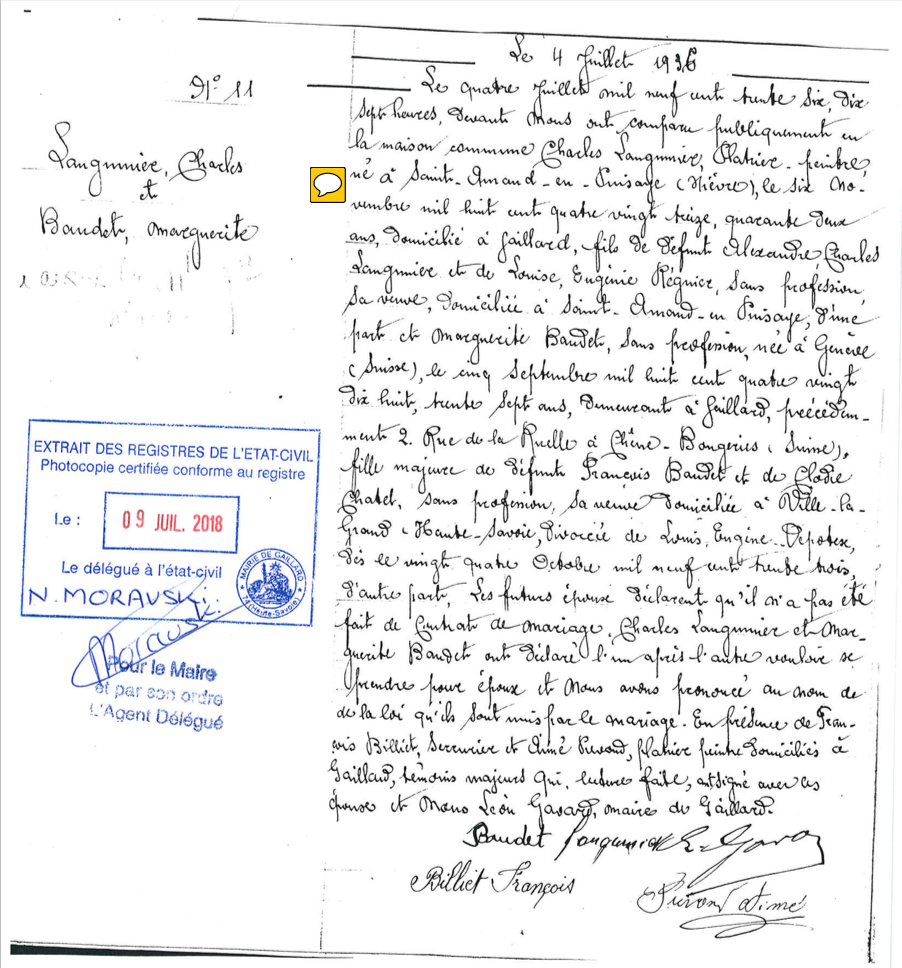 Le 4 Juillet 1936
N° 11
Langumier, Charles
et
Baudet, Marguerite
Le quatre Juillet mil neuf cent trente six, dix
sept heures, devant Nous ont comparu publiquement en
la maison commune Charles Langumier, Platrier-peintre,
né à Saint-Amand-en-Puisaye (Nièvre), le six No-
vembre mil huit cent quatre vingt treize, quarante deux
ans, domicilié à Gaillard, fils de défunt Alexandre, Charles
Langumier et de Louise, Eugénie Régnier, sans profession,
sa veuve, domiciliée à Saint-Amand-en Puisaye, d'une
part et Marguerite Baudet, sans profession, née à Genève
(Suisse), le cinq Septembre mil huit cent quatre vingt
dix huit, trente sept ans, demeurant à Gaillard, précédem-
ment 2. Rue de la Ruelle à Chêne-Bougeries (Suisse),
fille majeure de défunt François Baudet et de Clodie
Chatel, sans profession, sa veuve domiciliée à Ville-la-
Grand (Haute-Savoie, divorcée de Louis, Eugène
dès le vingt quatre Octobre mil neuf cent trente trois,
d'autre part, Les futurs époux déclarent qu'il n'a pas été
fait de Contrat de mariage. Charles Langumier et Mar-
guerite Baudet ont déclaré l'un après l'autre vouloir se
prendre pour époux et Nous avons prononcé au nom de
de la loi qu'ils sont unis par le mariage. En présence de Fran-
çois Billiet, Serrurier et Aimé Puvond, platrier peintre domiciliés à
Gaillard, témoins majeurs qui, lecture faite, ont signé avec les
époux et Nous Léon Gavard, maire de Gaillard.
Baudet Langumier L. Gavard
Billiet François
Aimé
EXTRAIT DES REGISTRES DE L'ETAT-CIVIL
Photocopie certifiée conforme au registre
Le : 09 JUIL. 2018
Le délégué à l'état-civil
N. MORAVSKI
MAIRIE DE GAILLARD
74 (Haute-Savoie)
Pour le Maire
et par son ordre
L'Agent Délégué